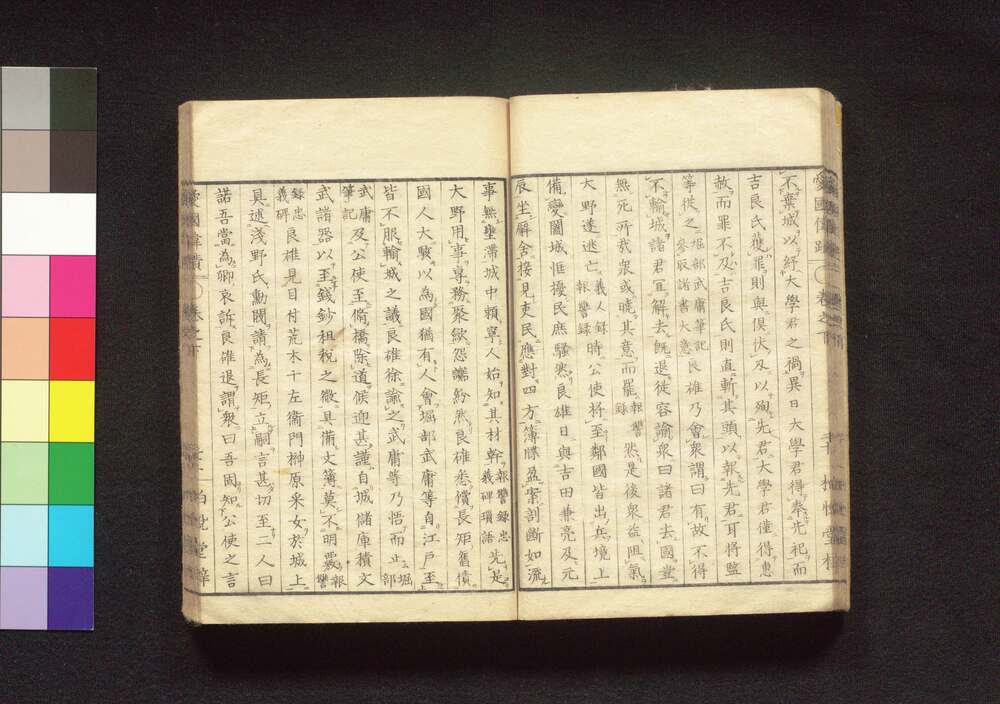 不葉城以紓大學君之禍異日大學君得奉先祀而
吉良氏獲罪則與俱伏及以殉先君大學君僅得惠
赦而罪不及吉良氏則直斬其頭以報先君耳將監
等從之堀部武庸筆記參取諸書大意良雄乃會衆謂曰有故不得
不輸城諸君宜解去既退從容諭衆曰諸君去國豈
無死所我衆或曉其意而罷報讐錄然是後衆益阻氣
大野遂逃亡義人錄報讐錄時公使將至鄰國皆出兵境上
備變闔城恇擾民庶騷然良雄日與吉田兼亮及元
辰坐廨舍接見吏民應對四方簿牒盈案剖斷如流
事無壅滯城中頼寧人始知其材幹報讐錄忠義碑瑣語先是
大野用事專務聚歛怨讟紛然良雄悉償長矩舊債
國人大駭以為國猶有人會堀部武庸等自江戸至
皆不服輸城之議良雄徐諭之武庸等乃悟而止堀部
武庸筆記及公使至脩橋除道候迎甚謹自城儲庫積文
武諸器以至錢鈔租稅之徵具備文簿莫不明覈報讐
錄忠義碑良雄見目付荒木十左衞門榊原采女於城上
具述淺野氏勳閥請為長矩立嗣言甚切至二人曰
諾吾當為卿哀訴良雄退謂衆曰吾固知公使之言